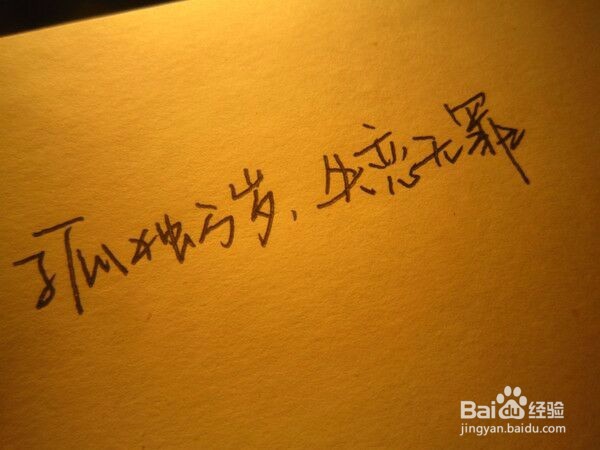 孤独万岁，失恋无罪
Bai du 经验
jingyan.baidu.com